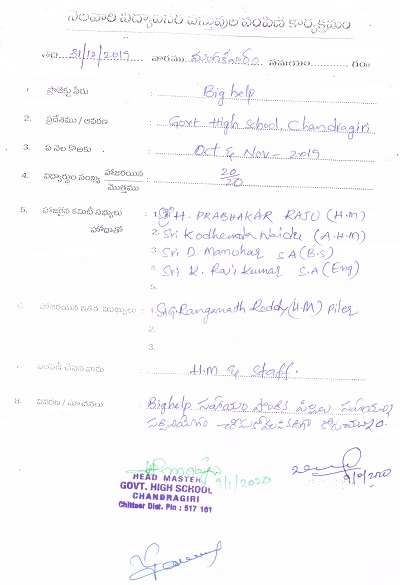 నెలవారి విద్యావసర వస్తువుల పంపిణి కార్యక్రమం
తేది 31/12/2019 వారము మంగళవారం సమయం గం॥
1. ప్రాజెక్టు పేరు : Bighelp
2. ప్రదేశము / ఆవరణ : Govt High School, Chandragiri
3. ఏ నెల కొఱకు : Oct & Nov - 2019
4. విద్యార్థుల సంఖ్య హాజరయిన / మొత్తము : 20/20
5. హాజరైన కమిటీ సభ్యులు : 1. Sri H. PRABHAKAR RAJU (H.M)
హోదాతో 2. Sri Kodhenata Naidu (A.H.M)
3. Sri D. Manohar S.A (B.S)
4. Sri K. Raj Kumar S.A (Eng)
5.
6. హాజరయిన ఇతర ముఖ్యులు : 1. Sri G. Ranganath Reddy (H.M) Piler
2.
3.
7. పంపిణీ చేసిన వారు : H.M & Staff.
8. వివరణ / సూచనలు : Bighelp సహాయం పొందిన పిల్లలు సహాయం
9/1/2020
9/01/2020
HEAD MASTER
GOVT. HIGH SCHOOL
CHANDRAGIRI
Chittoor Dist. Pin : 517 101